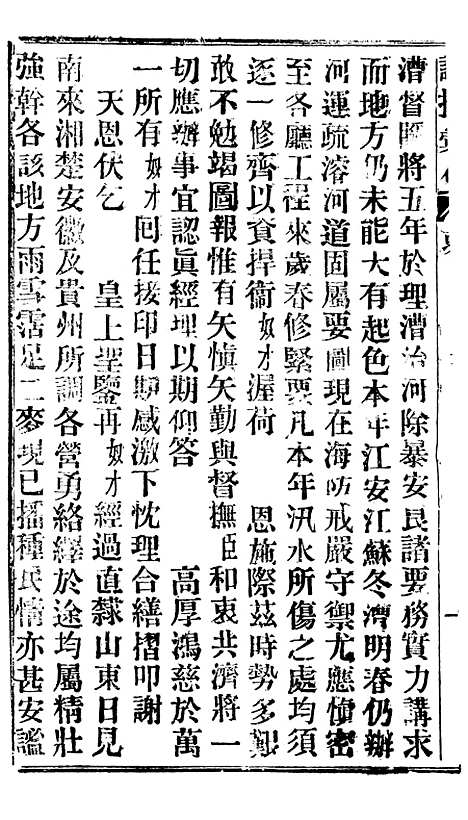 漕督匭將五年於理漕治河除暴安民諸要務實力講求
而地方仍未能大有起色本年江安江蘇冬漕明春仍辦
河運疏濬河道固屬要圖現在海防戒嚴守禦尤應愼密
至各廳工程來歲春修緊要凡本年汛水所傷之處均須
逐一修齊以資捍衞奴才渥荷　恩施際茲時勢多艱
敢不勉竭圖報惟有矢愼矢勤與督撫臣和衷共濟將一
切應辦事宜認眞經理以期仰答　高厚鴻慈於萬
一所有奴才回任接印日期感激下忱理合繕摺叩謝
天恩伏乞　皇上聖鑒再奴才經過直隸山東日見
南來湘楚安徽及貴州所調各營勇絡繹於途均屬精壯
強幹各該地方雨雪霑足二麥現已播種民情亦甚安謐